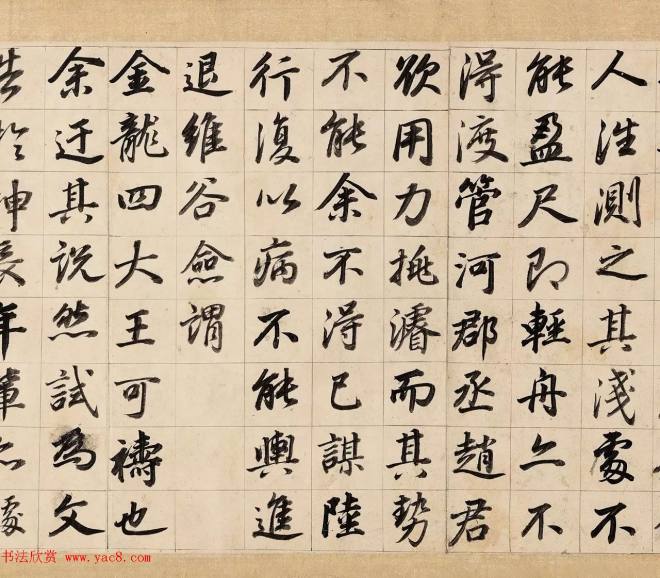 人往測之其淺處不
能盈尺即輕舟亦不
得渡管河郡丞趙君
欲用力挑濬而其勢
不能余不得已謀陸
行復以病不能輿進
退維谷僉謂
金龍四大王可禱也
余迂其說然試為文
告於神
书法欣赏 www.yac8.com